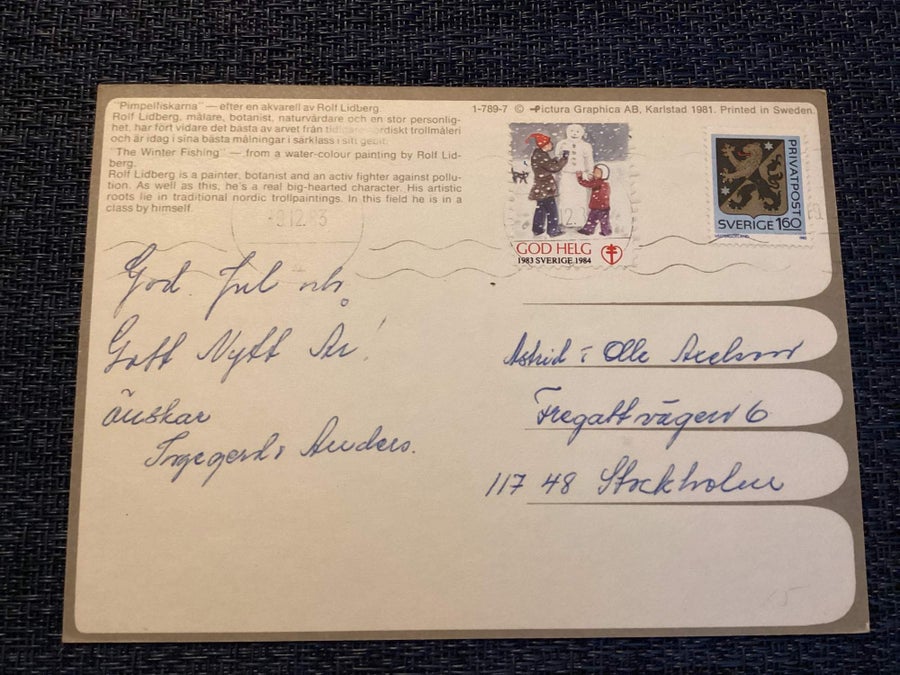 "Pimpelfiskarna" — efter en akvarell av Rolf Lidberg.
Rolf Lidberg, målare, botanist, naturvårdare och en stor personlig-
het, har fört vidare det bästa av arvet från nordiskt trollmåleri
och är idag i sina bästa målningar i särklass i sitt gebit.
"The Winter Fishing" — from a water-colour painting by Rolf Lid-
berg.
Rolf Lidberg is a painter, botanist and an activ fighter against pollu-
tion. As well as this, he's a real big-hearted character. His artistic
roots lie in traditional nordic trollpaintings. In this field he is in a
class by himself.
1-789-7 © Pictura Graphica AB, Karlstad 1981. Printed in Sweden.
12.83
GOD HELG
1983 SVERIGE 1984
PRIVATPOST
SVERIGE 160
God Jul och
Gott Nytt År!
önskar
Ingegerd & Anders.
Astrid & Olle Axelsson
Fregattvägen 6
117 48 Stockholm